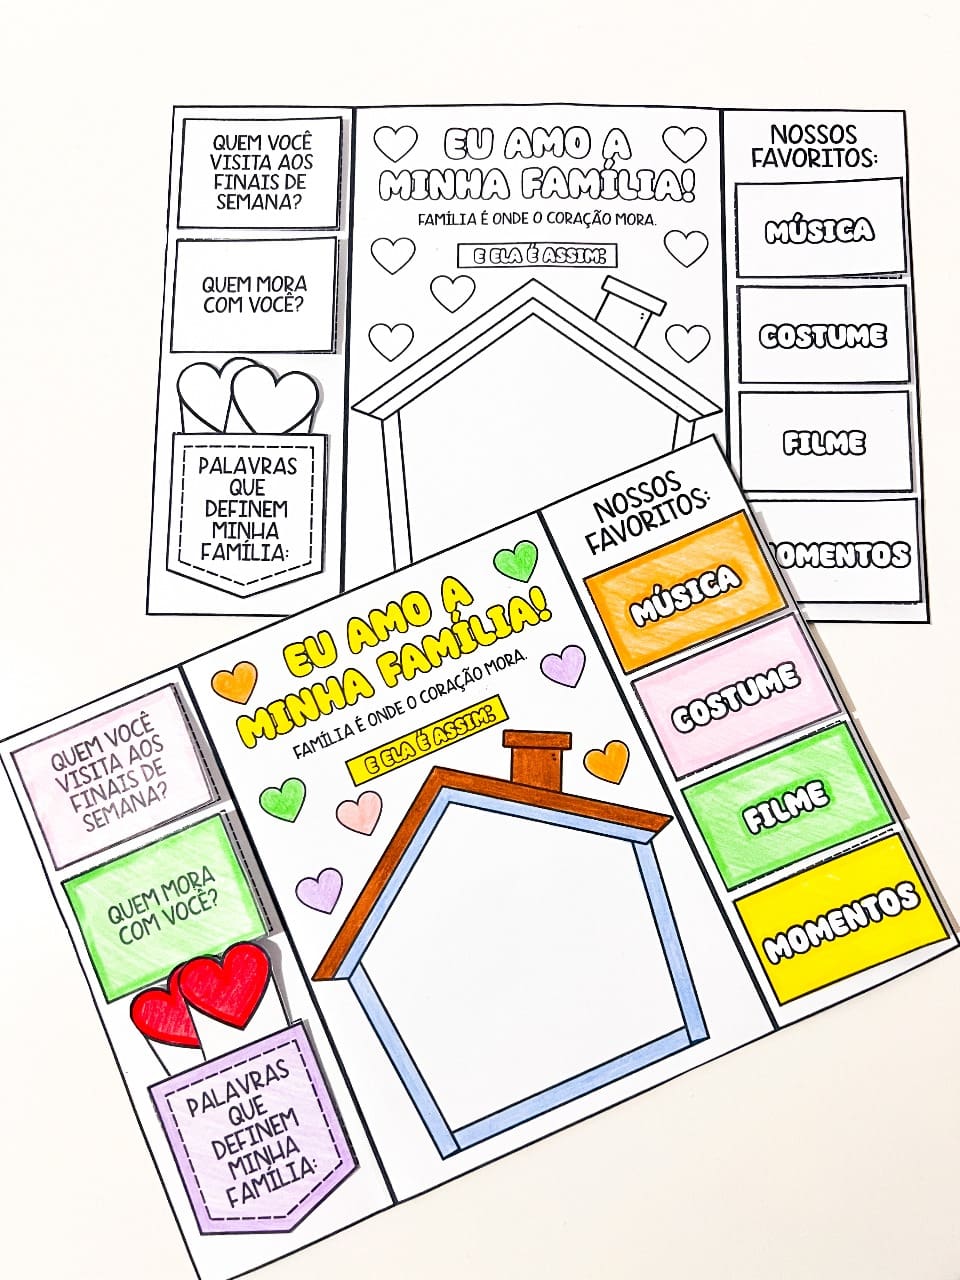 QUEM VOCÊ
VISITA AOS
FINAIS DE
SEMANA?
QUEM MORA
COM VOCÊ?
PALAVRAS
QUE
DEFINEM
MINHA
FAMÍLIA:
EU AMO A
MINHA FAMÍLIA!
FAMÍLIA É ONDE O CORAÇÃO MORA.
E ELA É ASSIM:
NOSSOS
FAVORITOS:
MÚSICA
COSTUME
FILME
MOMENTOS
QUEM VOCÊ
VISITA AOS
FINAIS DE
SEMANA?
QUEM MORA
COM VOCÊ?
PALAVRAS
QUE
DEFINEM
MINHA
FAMÍLIA:
EU AMO A
MINHA FAMÍLIA!
FAMÍLIA É ONDE O CORAÇÃO MORA.
E ELA É ASSIM:
NOSSOS
FAVORITOS:
MÚSICA
COSTUME
FILME
MOMENTOS